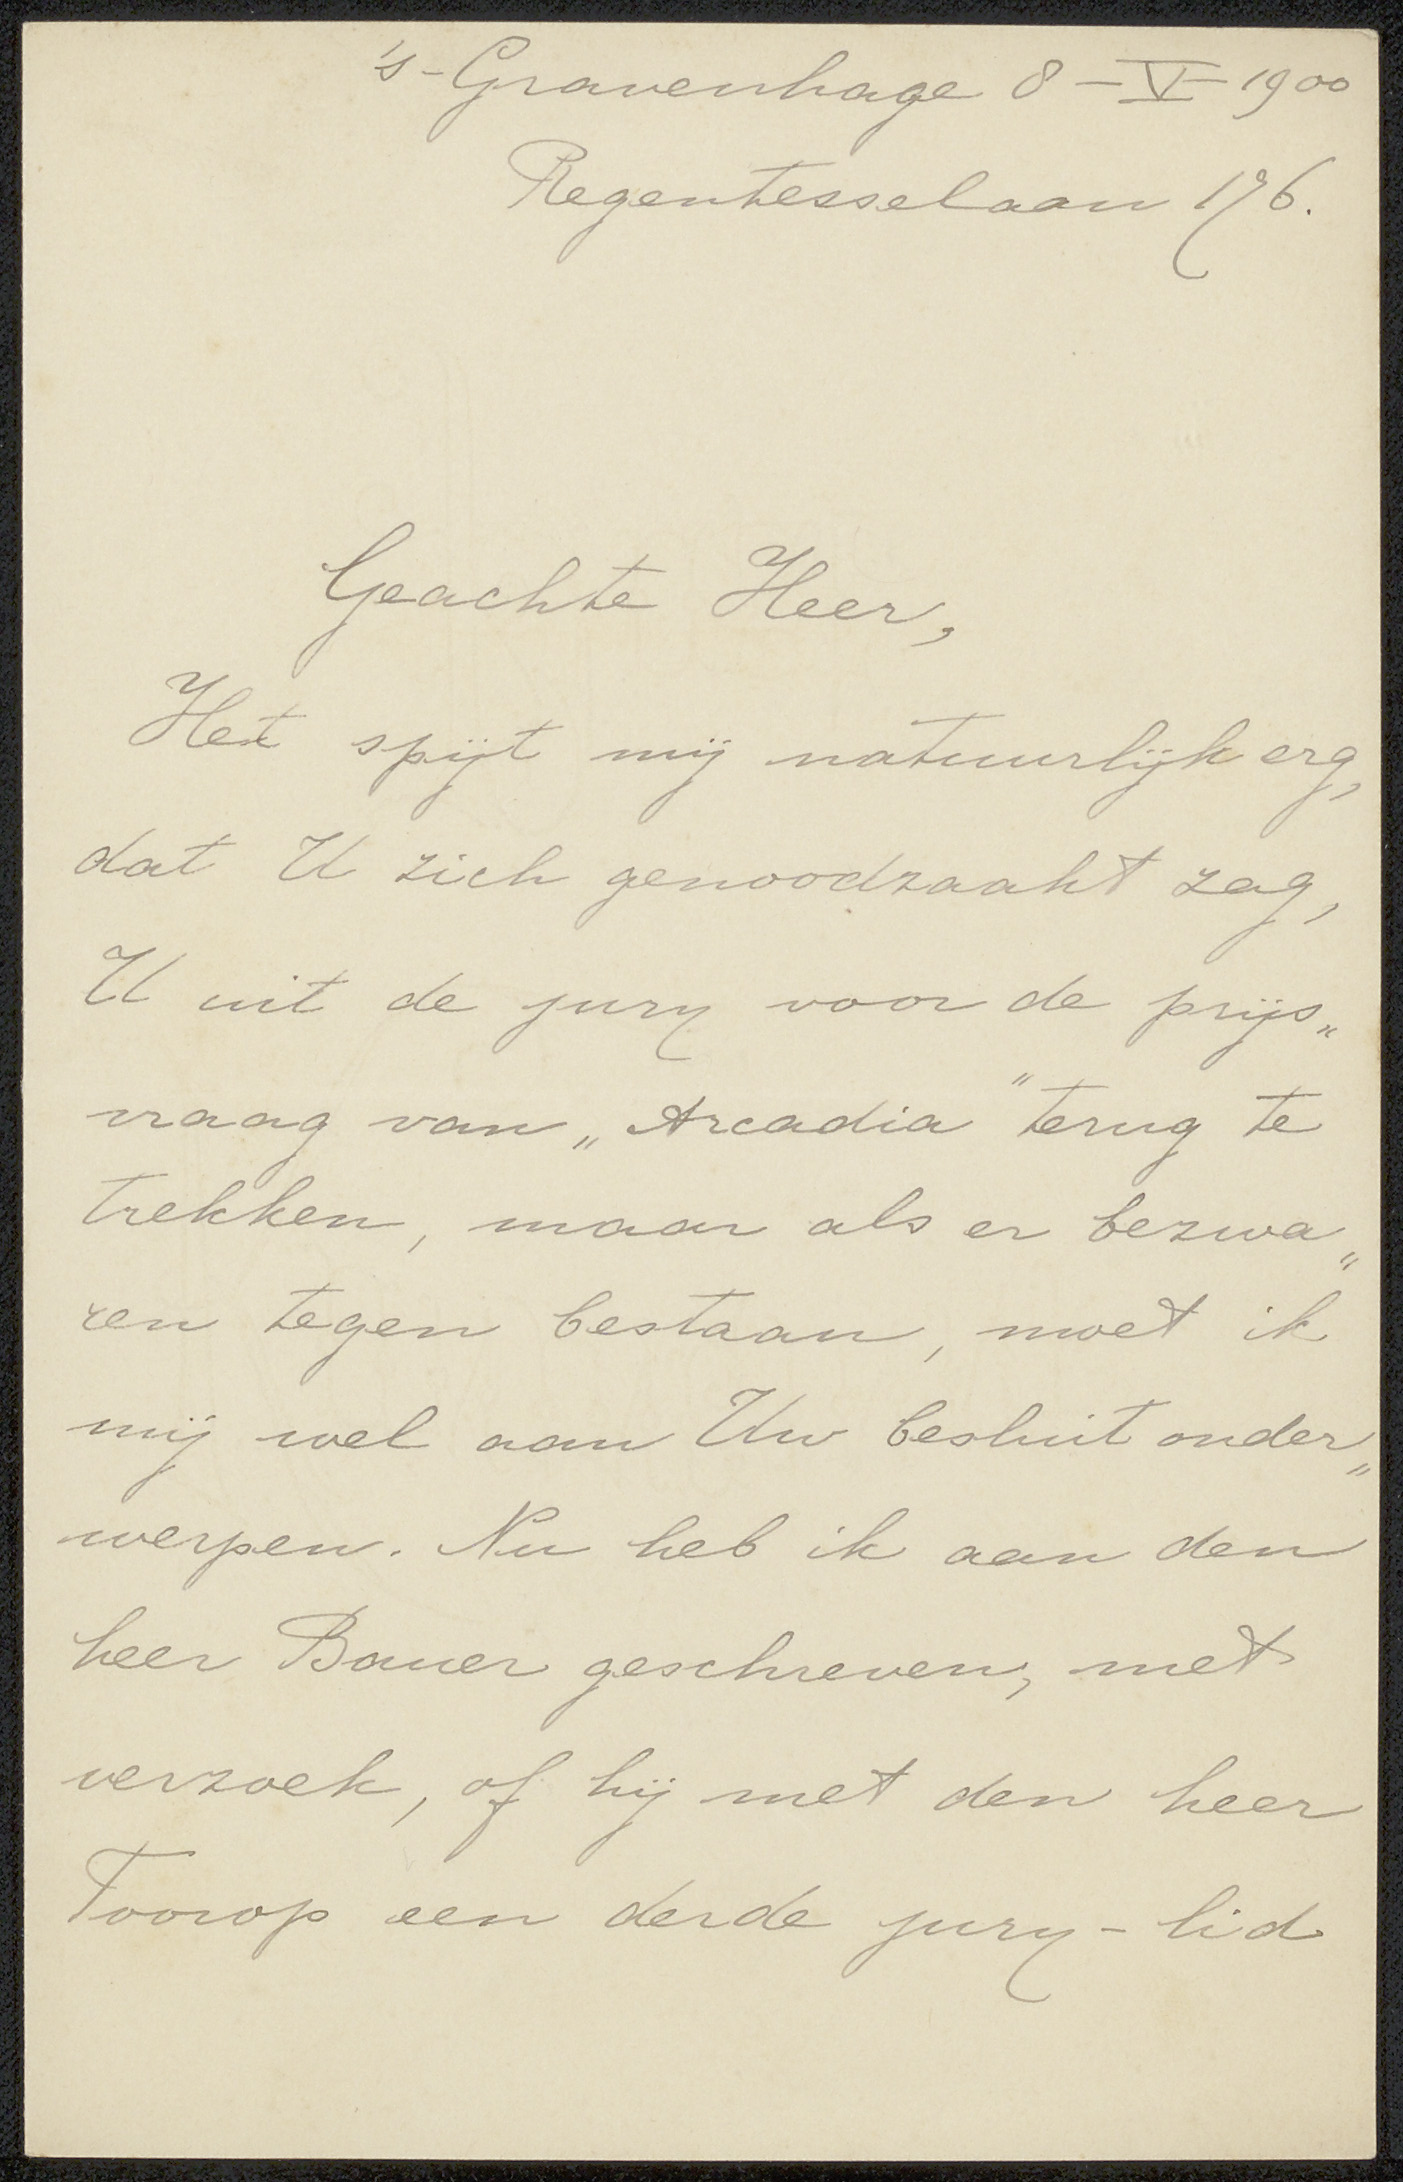 's-Gravenhage 8-V-1900
Regentesselaan 176.
Geachte Heer,
Het spijt mij natuurlijk erg,
dat U zich genoodzaakt zag,
U uit de jury voor de prijs„
vraag van „Arcadia" terug te
trekken, maar als er bezwa„
ren tegen bestaan, moet ik
mij wel aan Uw besluit onder„
werpen. Nu heb ik aan den
heer Bauer geschreven, met
verzoek, of hij met den heer
Toorop een derde jury-lid